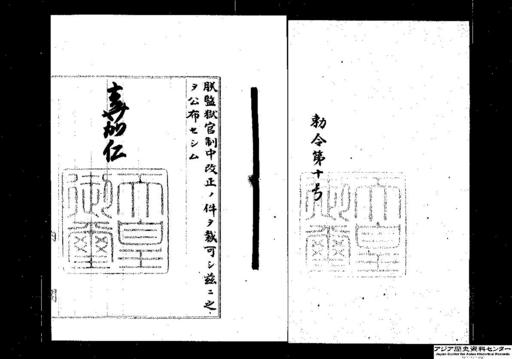 勅令第十号
朕監獄官制中改正ノ件ヲ裁可シ茲ニ之
ヲ公布セシム
嘉仁
天皇
御璽
アジア歴史資料センター
Japan Center for Asian Historical Records